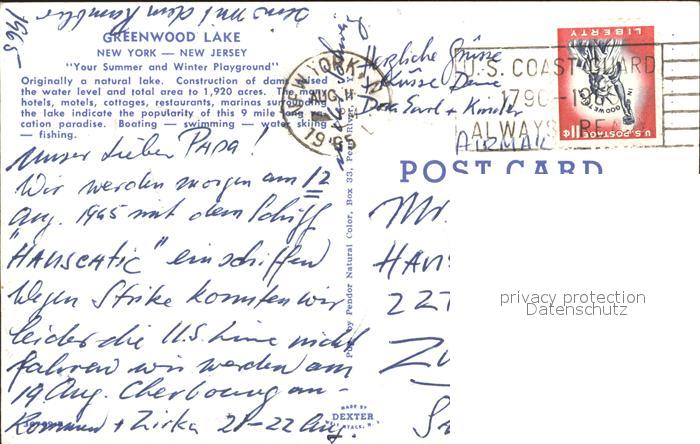 1965 –
GREENWOOD LAKE
NEW YORK — NEW JERSEY
"Your Summer and Winter Playground"
Originally a natural lake. Construction of dams raised
the water level and total area to 1,920 acres. The many
hotels, motels, cottages, restaurants, marinas surrounding
the lake indicate the popularity of this 9 mile long
cation paradise. Boating — swimming — water skiing
— fishing.
Unser Lieber Papa!
Wir werden morgen am 12
Aug. 1965 mit dem Schiff
"HANSEATIC" einschiffen
Wegen Strike konnten wir
leider die U.S. Line nicht
fahren wir werden am
19 Aug. Cherbourg an-
kommen + Zirka 21-22 Aug.
Herzliche Grüsse
+ Küsse Deine
+ Kinder
NEW YORK, N.Y.
AUG 11
1965
U.S. COAST GUARD
1790-1
ALWAYS READY
LIBERTY
IN GOD WE TRUST
U.S. POSTAGE 11¢
AIRMAIL
POST CARD
Mr.
HANS
227
Pub. by Pendor Natural Color, Box 33, Pearl River, N.Y.
MADE BY
DEXTER
WEST NYACK, N.Y.
privacy protection
Datenschutz